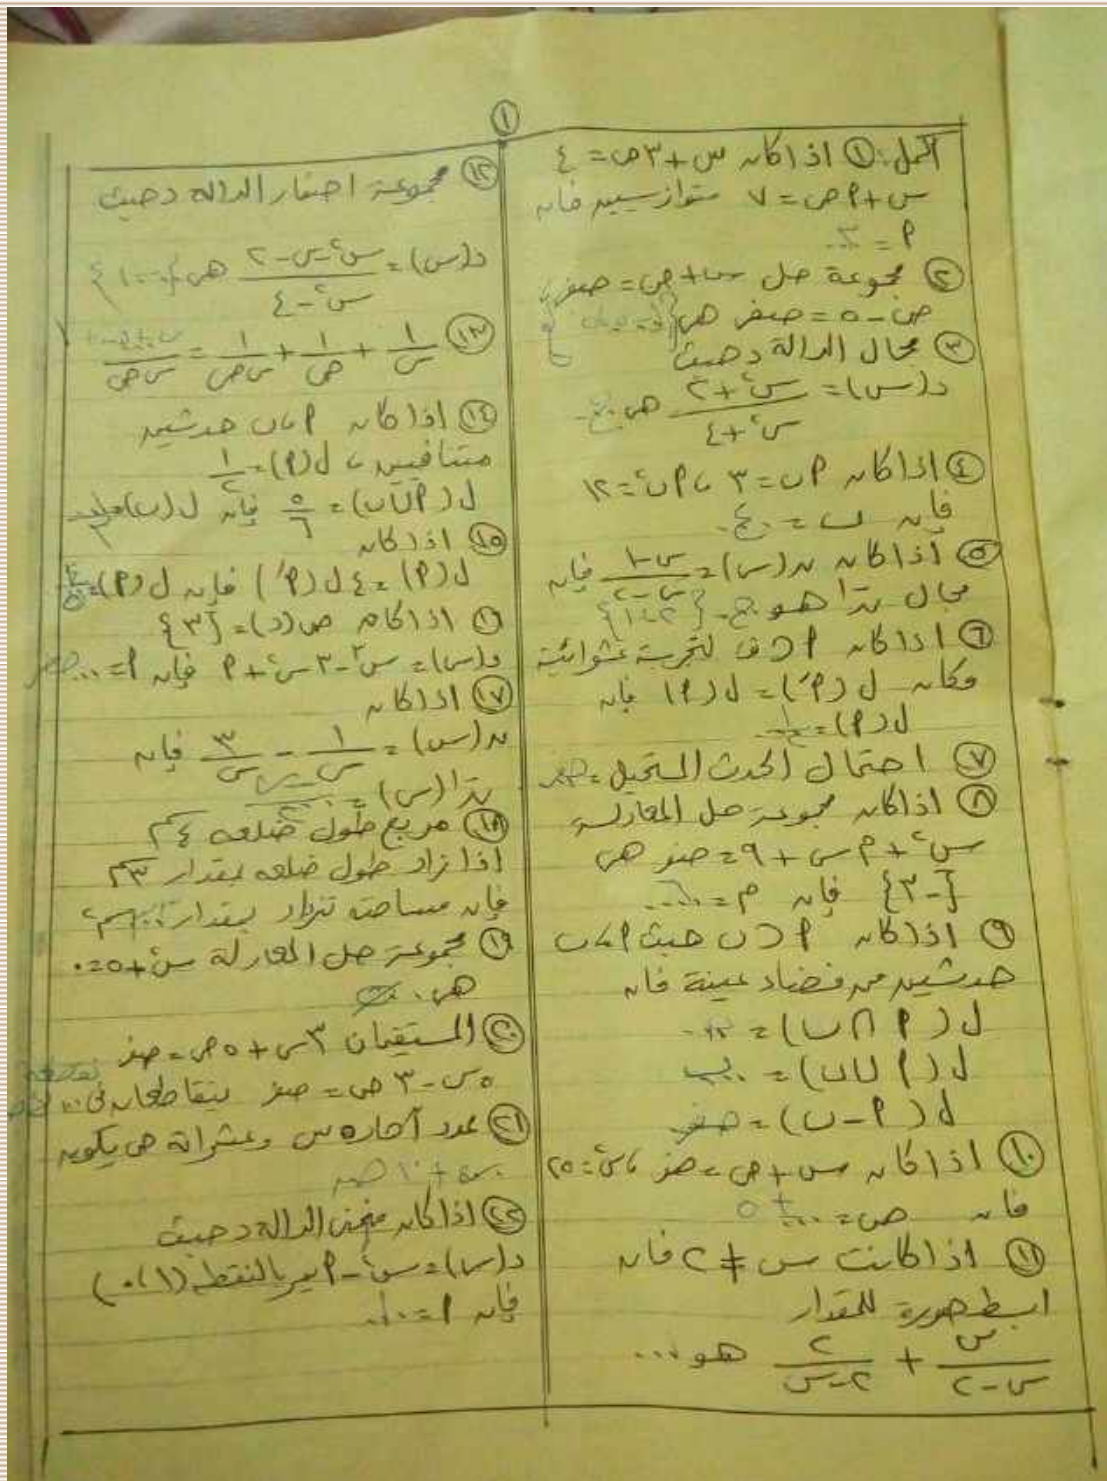 ١
اكمل: ① اذا كان س + ٣ص = ٤
س + ٢ص = ٧ متوازيين فان
٢ =
② مجموعة حل س + ص = صفر،
ص - ٥ = صفر هى
③ مجال الدالة د حيث
د(س) = (س٢ + ٢) / (س٢ + ٤) هى ح
④ اذا كان ٢ب = ٣ ، ٢ب٢ = ١٢
فإن ب = ٤
⑤ اذا كان ن(س) = (س - ١) / (س - ٢) فإن
مجال ن١ هو ح - {١،٢}
⑥ اذا كان ٢ ⊂ ف لتجربة عشوائية
وكان ل(٢َ) = ل(٢) فإن
ل(٢) = ١/٢
⑦ احتمال الحدث المستحيل = صفر
⑧ اذا كان مجموعة حل المعادلة
س٢ + م س + ٩ = صفر هى
{-٣} فإن م = ٦
⑨ اذا كان ٢ ⊂ ب حيث ٢، ب
حدثين من فضاء عينة فان
ل(٢ ∩ ب) =
ل(٢ ∪ ب) = ب
ل(٢ - ب) = صفر
⑩ اذا كان س + ص = صفر ، س٢ = ٢٥
فان ص = ± ٥
⑪ اذا كانت س ≠ ٢ فان
ابسط صورة للمقدار
س / (س - ٢) + ٢ / (٢ - س) هو ...
⑫ مجموعة اصفار الدالة د حيث
د(س) = (س٢ - س - ٢) / (س٢ - ٤) هى {-١}
⑬ ١/س + ١/ص + ١/س ص = / س ص
⑭ اذا كان ٢، ب حدثين
متنافيين ، ل(٢) = ١/٢
ل(٢ ∪ ب) = ٥/٦ فإن ل(ب) =
⑮ اذا كان
ل(٢) = ٤ ل(٢َ) فإن ل(٢) = ٤/٥
⑯ اذا كان ص(د) = {٣}
د(س) = س٣ - ٣س٢ + ٢ فإن ٢ = ... صفر
⑰ اذا كان
ن(س) = ١/س - ٣/س فإن
ن١(س) =
⑱ مربع طول ضلعه ٤سم
اذا زاد طول ضلعه بمقدار ٣سم
فإن مساحته تزداد بمقدار سم٢
⑲ مجموعة حل المعادلة س٢ + ٥ = ٠
هى
⑳ المستقيمان ٣س + ٥ص = صفر
٥س - ٣ص = صفر يتقاطعان فى نقطة
㉑ عدد آحاده س وعشراته ص يكون
س + ١٠ ص
㉒ اذا كان منحنى الدالة د حيث
د(س) = س٢ - ٢ يمر بالنقطة (١،٠)
فإن ٢ = ١